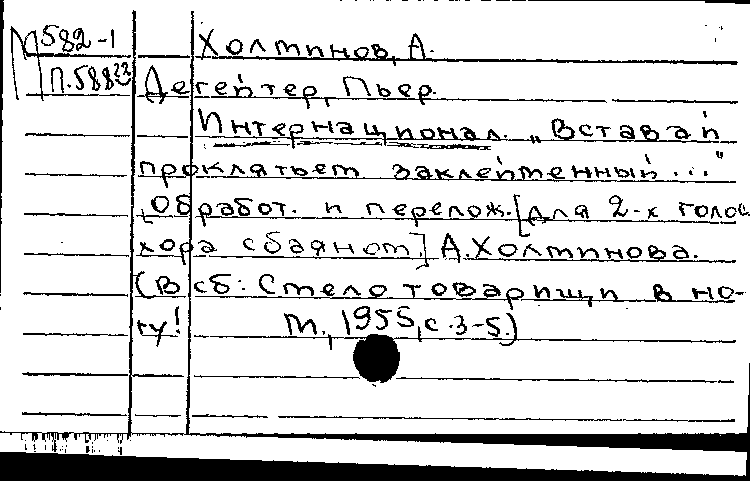 М582-1 Холминов, А.
П.588²³ Дегейтер, Пьер.
Интернационал. „Вставай
проклятьем заклейменный..."
Обработ. и перелож. [для 2-х голос
хора с баяном] А. Холминова.
(В сб: Смело товарищи в но-
гу! М., 1955, с.3-5.)